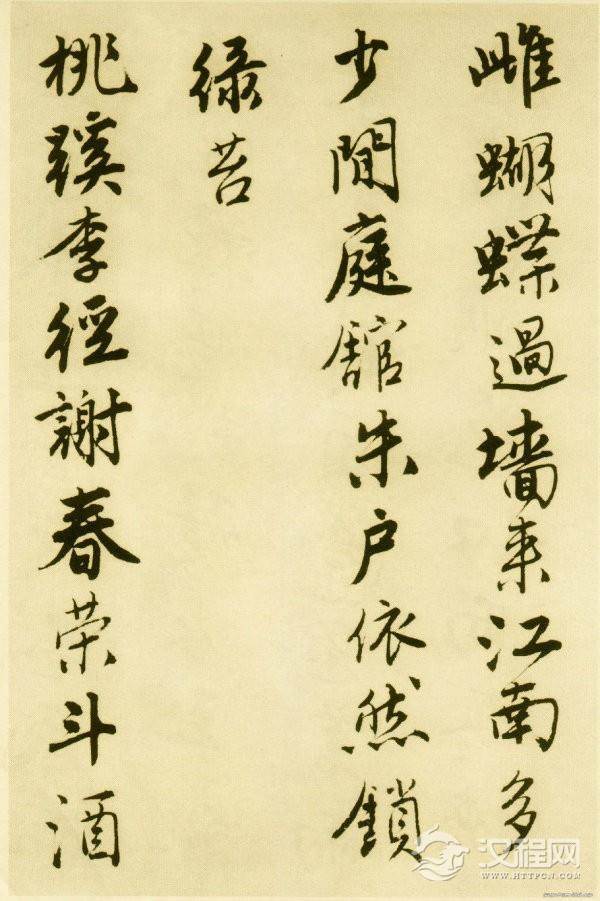 雌蝴蝶過墙来江南多
少閒庭舘朱户依然鎖
绿苔
桃蹊李徑謝春荣斗酒
汉程网
WWW.HTTPCN.COM